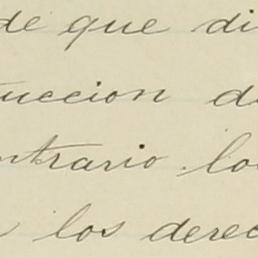 de que di
uccion d
ntrario lo
los derec